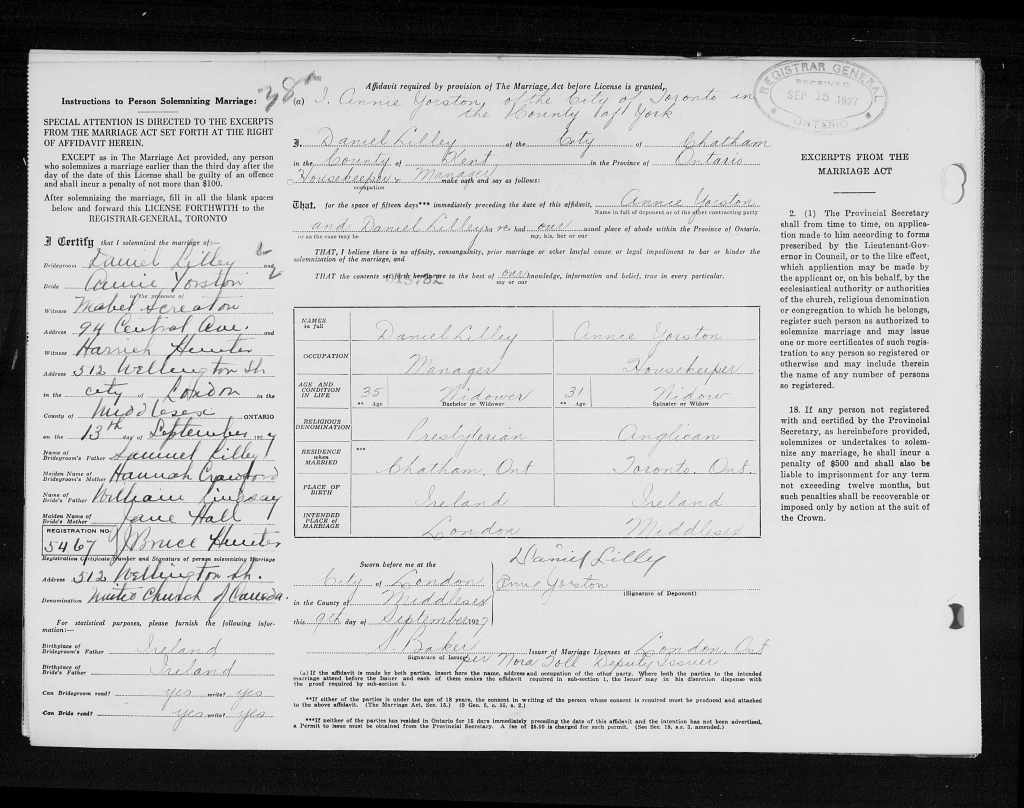 Instructions to Person Solemnizing Marriage:
SPECIAL ATTENTION IS DIRECTED TO THE EXCERPTS
FROM THE MARRIAGE ACT SET FORTH AT THE RIGHT
OF AFFIDAVIT HEREIN.
EXCEPT as in The Marriage Act provided, any person
who solemnizes a marriage earlier than the third day after the
day of the date of this License shall be guilty of an offence
and shall incur a penalty of not more than $100.
After solemnizing the marriage, fill in all the blank spaces
below and forward this LICENSE FORTHWITH to the
REGISTRAR-GENERAL, TORONTO
I Certify that I solemnized the marriage of:—
Bridegroom Daniel Lilley and
Bride Annie Yorston
in the presence of
Witness Mabel Screaton
Address 94 Central Ave. and
Witness Harriet Hunter
Address 512 Wellington St.
in the city of London in the
County of Middlesex ONTARIO
on the 13th day of September 1927
Name of Bridegroom's Father Samuel Lilley
Maiden Name of Bridegroom's Mother Hannah Crawford
Name of Bride's Father William Lindsay
Maiden Name of Bride's Mother Jane Hall
REGISTRATION NO.
5467 J Bruce Hunter
Registration Certificate Number and Signature of person solemnizing Marriage
Address 512 Wellington St.
Denomination United Church of Canada.
For statistical purposes, please furnish the following infor-
mation:—
Birthplace of Bridegroom's Father Ireland
Birthplace of Bride's Father Ireland
Can Bridegroom read? yes write? yes
Can Bride read? yes write? yes
Affidavit required by provision of The Marriage Act before License is granted,
(a) I, Annie Yorston, of the City of Toronto in
the County of York
I, Daniel Lilley of the City of Chatham
in the County of Kent in the Province of Ontario
Housekeeper & Manager make oath and say as follows:
occupation
That, for the space of fifteen days*** immediately preceding the date of this affidavit, Annie Yorston
Name in full of deponent or of the other contracting party
and Daniel Lilley had our usual place of abode within the Province of Ontario.
or as the case may be my, his, her or our
THAT, I believe there is no affinity, consanguinity, prior marriage or other lawful cause or legal impediment to bar or hinder the
solemnization of the marriage, and
THAT the contents set forth herein are to the best of our knowledge, information and belief, true in every particular.
my or our
NAMES in full Daniel Lilley Annie Yorston
OCCUPATION Manager Housekeeper
AGE AND CONDITION IN LIFE 35 Widower 31 Widow
** Age Bachelor or Widower ** Age Spinster or Widow
RELIGIOUS DENOMINATION Presbyterian Anglican
RESIDENCE when MARRIED *** Chatham, Ont Toronto, Ont.
PLACE OF BIRTH Ireland Ireland
INTENDED PLACE of MARRIAGE London Middlesex
Sworn before me at the
City of London
in the County of Middlesex
this 9th day of September 1927
Daniel Lilley
Annie Yorston
(Signature of Deponent)
S. Baker Issuer of Marriage Licenses at London, Ont
Signature of Issuer per Nora Toll Deputy Issuer
(a) If the affidavit is made by both parties, insert here the name, address and occupation of the other party. Where both the parties to the intended
marriage attend before the Issuer and each of them makes the affidavit required in sub-section 1, the Issuer may in his discretion dispense with
the proof required by sub-section 5.
**If either of the parties is under the age of 18 years, the consent in writing of the person whose consent is required must be produced and attached
to the above affidavit. (The Marriage Act, Sec. 15.) (9 Geo. 5, c. 35, s. 2.)
***If neither of the parties has resided in Ontario for 15 days immediately preceding the date of this affidavit and the intention has not been advertised,
a Permit to issue must be obtained from the Provincial Secretary. A fee of $5.00 is charged for such permit. (See Sec. 19, s.s. 3, amended.)
REGISTRAR GENERAL
RECEIVED
SEP 15 1927
ONTARIO
EXCERPTS FROM THE
MARRIAGE ACT
2. (1) The Provincial Secretary
shall from time to time, on applica-
tion made to him according to forms
prescribed by the Lieutenant-Gov-
ernor in Council, or to the like effect,
which application may be made by
the applicant or, on his behalf, by the
ecclesiastical authority or authorities
of the church, religious denomination
or congregation to which he belongs,
register such person as authorized to
solemnize marriage and may issue
one or more certificates of such regis-
tration to any person so registered or
otherwise and may include therein
the name of any number of persons
so registered.
18. If any person not registered
with and certified by the Provincial
Secretary, as hereinbefore provided,
solemnizes or undertakes to solem-
nize any marriage, he shall incur a
penalty of $500 and shall also be
liable to imprisonment for any term
not exceeding twelve months, but
such penalties shall be recoverable or
imposed only by action at the suit of
the Crown.